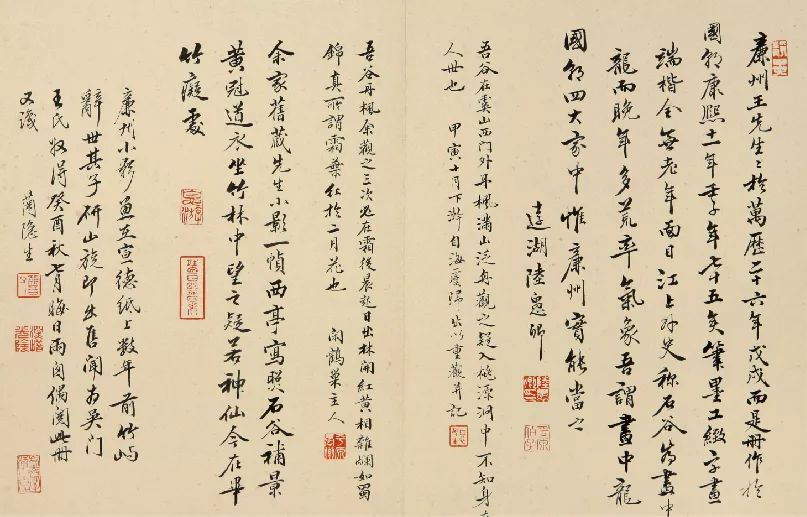 廉州王先生〻於萬歷二十六年戊戌而是冊作於
國朝康熙十一年壬子年七十五矣筆墨工緻字畫
端楷全無老年面目江上外史稱石谷為畫中
龍而晚年多荒率氣象吾謂畫中龍
國朝四大家中惟廉州實能當之
遠湖陸愚卿
吾谷在虞山西門外丹楓滿山泛舟觀之疑入桃源洞中不知身在
人世也 甲寅十月下澣自海虞歸出以重觀并記
吾谷丹楓余觀之三次必在霜後晨起日出林間紅黃相雜斕如蜀
錦真所謂霜葉紅於二月花也 閑鶴巢主人
余家舊藏先生小影一幀西亭寫照石谷補景
黃冠道衣坐竹林中望之疑若神仙今在畢
竹癡處
廉州小影画在宣德紙上數年前竹嶼
辭世其子研山旋即出售聞為吳門
王氏收得癸酉秋七月晦日雨囪偶閱此冊
又識 蘭隱生